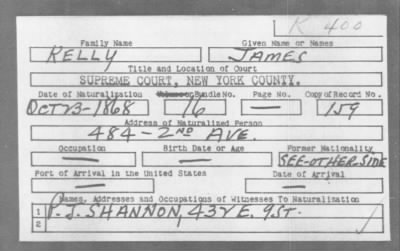 K 400
Family Name Given Name or Names
KELLY JAMES
Title and Location of Court
SUPREME COURT, NEW YORK COUNTY.
Date of Naturalization Volume or Bundle No. Page No. Copy of Record No.
OCT 23-1868 16 — 159
Address of Naturalized Person
484-2ND AVE.
Occupation Birth Date or Age Former Nationality
— — SEE-OTHER-SIDE
Port of Arrival in the United States Date of Arrival
— —
Names, Addresses and Occupations of Witnesses To Naturalization
1 P. J. SHANNON, 432 E. 9 ST.
2